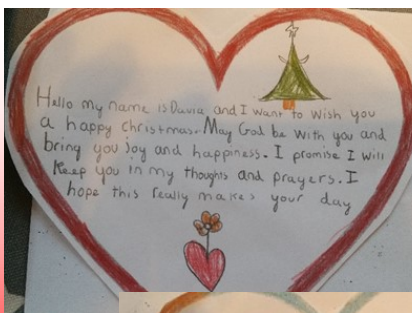 Hello my name is Davia and I want to wish you
a happy christmas. May God be with you and
bring you joy and happiness. I promise I will
Keep you in my thoughts and prayers. I
hope this really makes your day